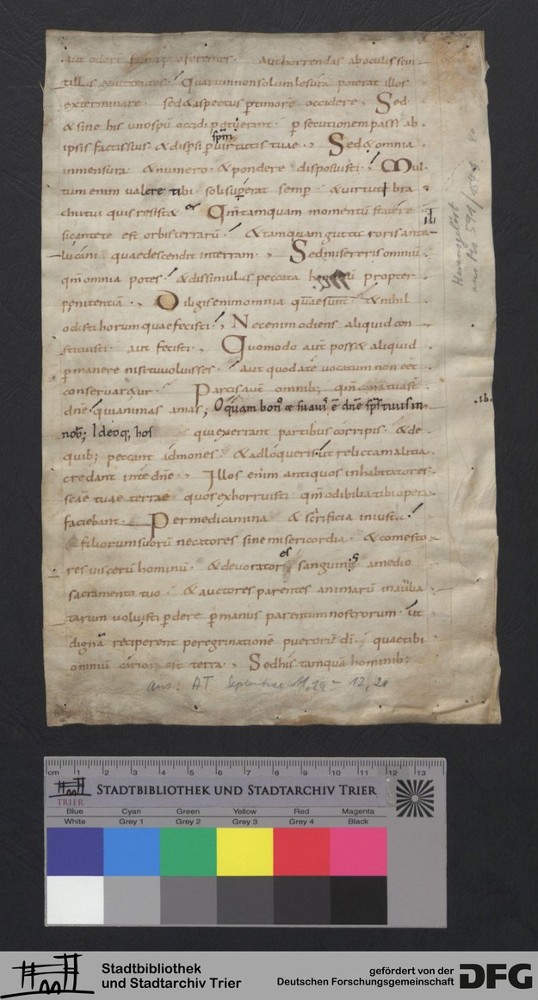 aut odore fumi proferentes · aut horrendas ab oculis scin
tillas emittentes · Quarum non solum lesura poterat illos
exterminare · sed & aspectus p timore occidere · Sed
& sine his uno spu occidi poterant p secutionem passi ab
ipsis factis suis & dispsi p uirtutis tuae · Sed & omnia
spm
in mensura & numero & pondere disposuisti · Mul
tum enim ualere tibi soli supererat semp & uirtuti bra
chii tui quis resist&
Qm tamquam momentu staterae
sic ante te est orbis terraru · & tamquam gutta roris ante
lucani quae descendit in terram · Sed misereris omniu
qm omnia potes · & dissimulas peccata propter
penitentia · Diligis enim omnia quae sunt · & nihil
odisti horum quae fecisti · Nec enim odiens aliquid con
stituisti aut fecisti · Quomodo aut poss& aliquid
p manere nisi tu uoluisses · aut quod a te uocatum non e&
conseruar&ur · Parcis aut omnib; qm tua st
dne qui animas amas; O quam bon & suauis e dne sps tuus in
nob; Ideoq, hos qui exerrant partibus corripis · & de
quib; peccant admones & adloqueris ut relicta malitia
credant in te dne · Illos enim antiquos inhabitatores
scae tuae terrae quos exhorruisti qm odibilia tibi opera
faciebant · Per medicamina & sacrificia iniusta
& filiorum suoru necatores sine misericordia & comesto
res uisceru hominu & deuoratores sanguinis a medio
sacramento tuo & auctores parentes animaru inauxilia
tarum uoluisti p dere p manus parentum nostrorum · ut
digna reciperent peregrinatione pueroru di · quae tibi
omniu carior est terra · Sed & his tamquam hominib;
aus: AT Sapientiae 11,19 - 12,20
Stadtbibliothek und Stadtarchiv Trier
TRIER
cm 1 2 3 4 5 6 7 8 9 10 11 12 13
Blue Cyan Green Yellow Red Magenta
White Grey 1 Grey 2 Grey 3 Grey 4 Black
Stadtbibliothek
und Stadtarchiv Trier
gefördert von der
Deutschen Forschungsgemeinschaft
DFG